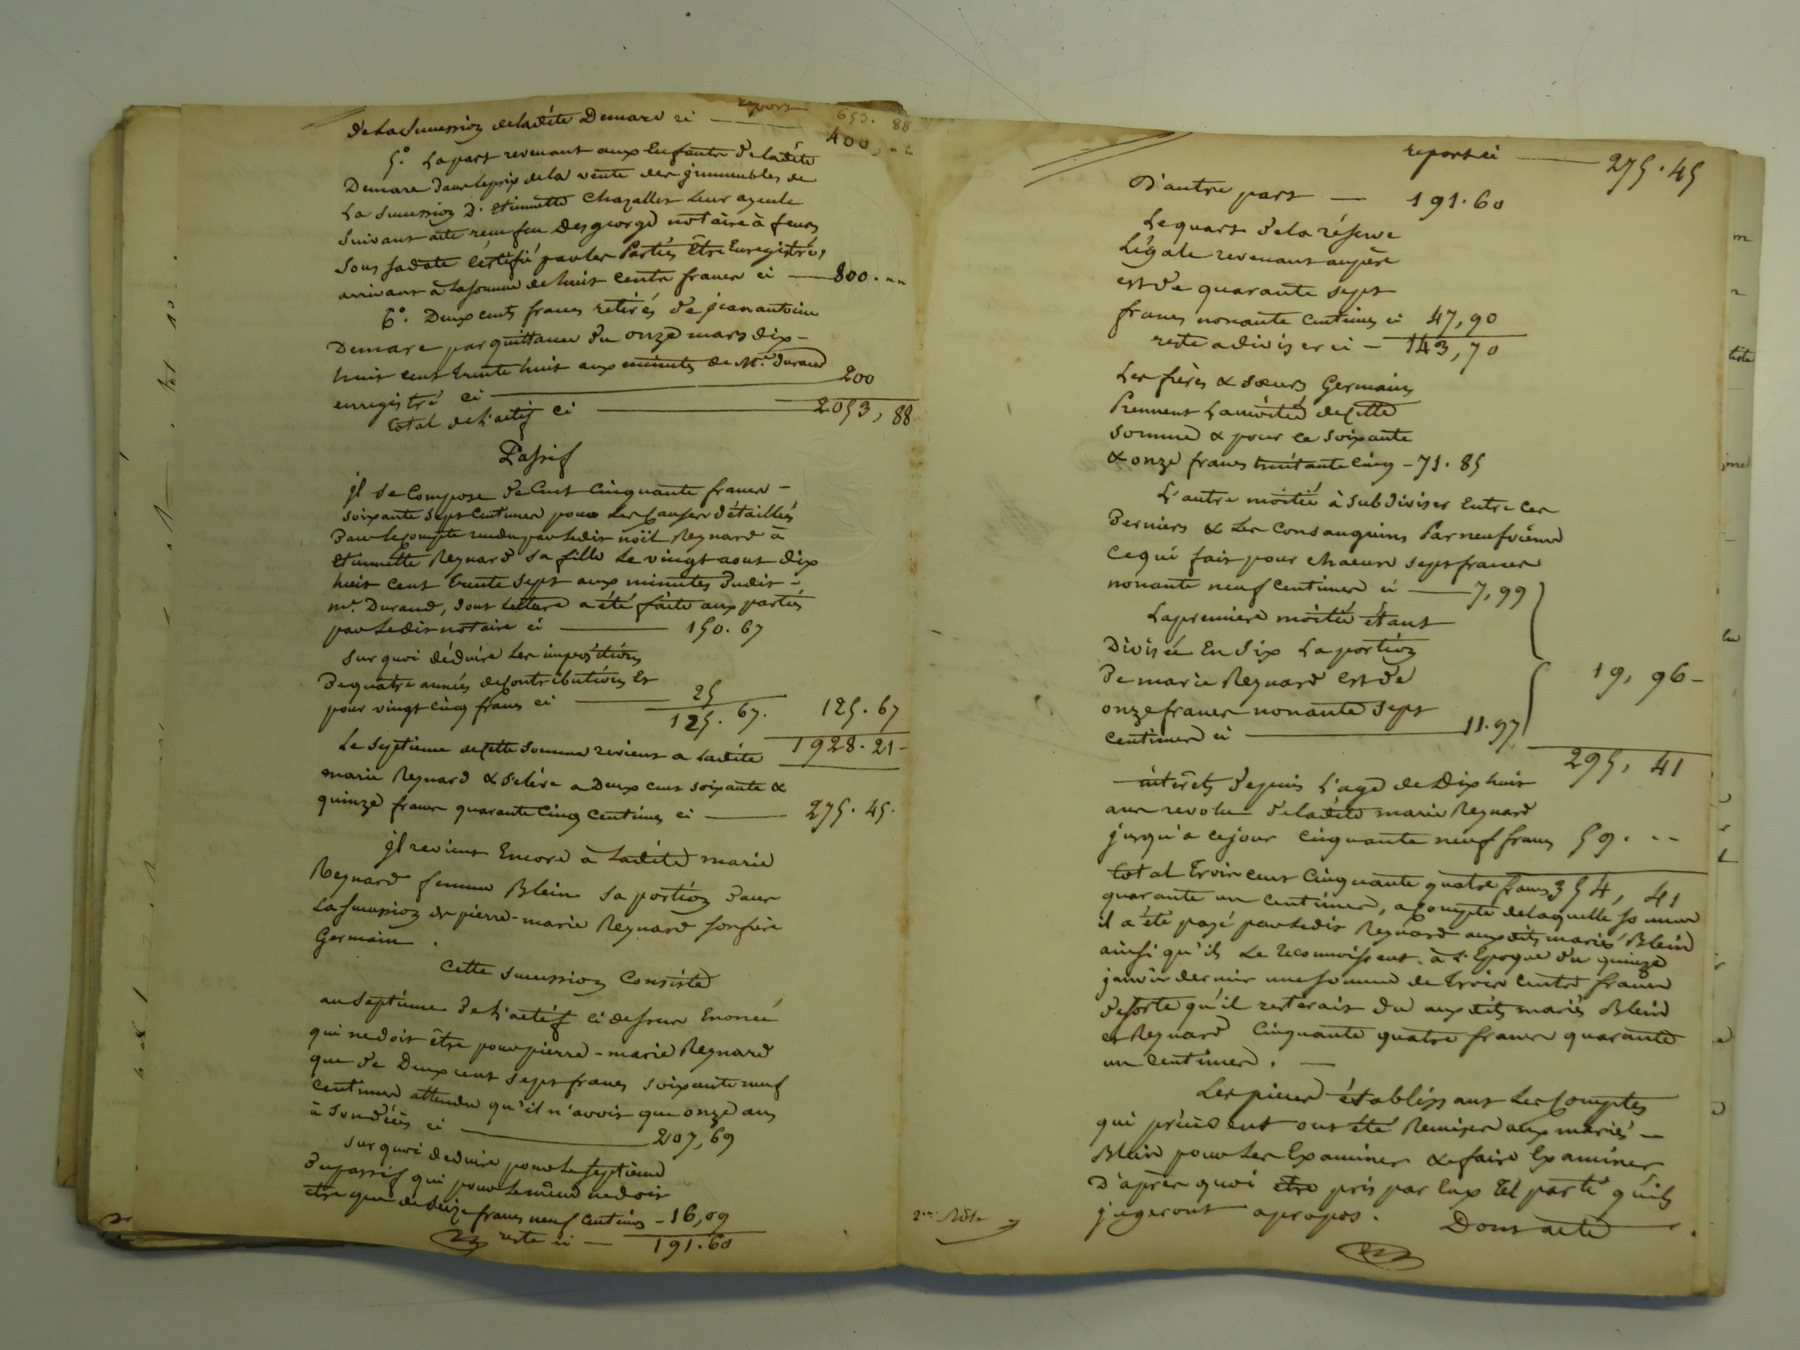 report 653. 88
de la succession de ladite Demare ci — 400, "
5.° La part revenant aux Enfants de ladite
Demare dans le prix de la vente des jmmeubles de
La succession D'Etiennette Chazalles Leur ayeule
suivant acte reçu feu Desgeorge notaire à feurs
sous sa date Certifié par les Parties Être Enregistré,
arrivant à la somme de huit cents francs ci — 800. ""
6.° Deux cents francs retirés de jean antoine
Demare par quittance du onze mars dix-
huit cent trente huit aux minutes de M.e Durand
enregistré ci — 200
total de L'actif ci — 2053, 88
Passif
jl se Compose de Cent Cinquante francs -
soixante sept Centimes pour Les Causes détaillées
Dans le Compte rendu par ledit noël Reynard à
Etiennette Reynard sa fille Le vingt aout dix
huit cent trente sept aux minutes dudit -
m.e Durand, dont Lecture a été faite aux parties
par Ledit notaire ci — 150. 67
sur quoi déduire Les impositions
De quatre années de Contributions Et
pour vingt Cinq francs ci — 25
125. 67. 125. 67
1928. 21 -
Le septieme de Cette somme revient a Ladite
marie Reynard & s'elève a Deux cent soixante &
quinze francs quarante Cinq Centimes ci — 275. 45.
jl revient Encore à Ladite marie
Reynard femme Blein sa portion Dans
La succession de pierre-marie Reynard son frère
Germain.
Cette succession Consiste
au septieme De L'actif ci dessus Enoncé
qui ne doit être pour pierre-marie Reynard
que de Deux cent sept francs soixante neuf
Centimes attendu qu'il n'avoit que onze ans
à son décès ci — 207, 69
sur quoi deduire pour Le septieme
Du passif qui pour Le même ne doit
etre que de seize francs neuf Centimes - 16, 09
reste ci — 191. 60
report ci — 275. 45
D'autre part — 191. 60
Le quart de la réserve
Légale revenant au père
est de quarante sept
francs nonante Centimes ci 47, 90
reste a diviser ci — 143, 70
Les frères & sœurs Germains
Prennent La moitié de Cette
somme & pour ce soixante
& onze francs huitante Cinq - 71. 85
L'autre moitié à subdiviser Entre Ces
Derniers & Les Consanguins Par neufvième
Ce qui fait pour chacun sept francs
nonante neuf Centimes ci — 7, 99
La première moitié étant
Divisée En six La portion
De marie Reynard Est de 19, 96 -
onze francs nonante sept
Centimes ci — 11. 97
295, 41
intérêts depuis L'age de Dix huit
ans revolus de ladite marie Reynard
jusqu'a ce jour Cinquante neuf francs 59. --
total trois cent Cinquante quatre francs 354, 41
quarante un Centimes, a Compte de laquelle somme
il a été payé par Ledit Reynard auxdits mariés Blein
ainsi qu'ils Le reconnoissent à L'Epoque du quinze
janvier dernier une somme de trois Cents francs
de sorte qu'il resterait du aux dits mariés Blein
et Reynard Cinquante quatre francs quarante
un Centimes. —
Les pieces établissant Les Comptes
qui précèdent ont été Remises aux mariés -
Blein pour Les Examiner & faire Examiner
D'après quoi etre pris par Eux tel parti qu'ils
jugeront apropos. Dont acte
2.me Rôle